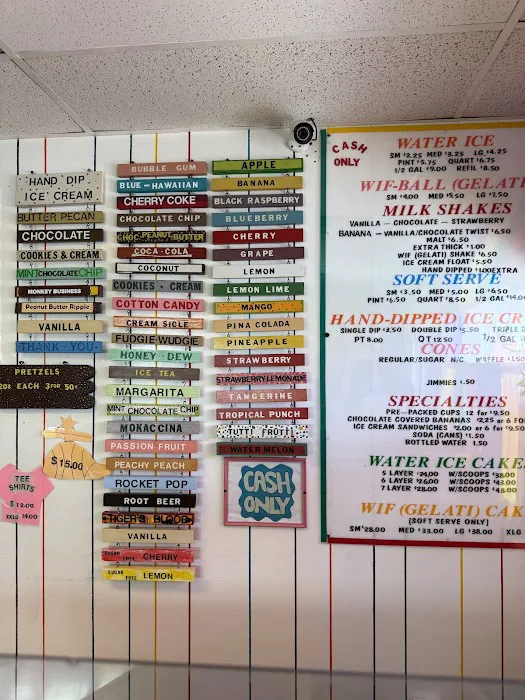 HAND DIP
ICE CREAM
BUTTER PECAN
CHOCOLATE
COOKIES & CREAM
MINT CHOCOLATE CHIP
MONKEY BUSINESS
Peanut Butter Ripple
VANILLA
THANK-YOU
PRETZELS
20¢ EACH 3 FOR 50¢
$15.00
TEE
SHIRTS
$12.00
XXLG 14.00
BUBBLE GUM
BLUE-HAWAIIAN
CHERRY COKE
CHOCOLATE CHIP
CHOC-PEANUT BUTTER
COCA-COLA
COCONUT
COOKIES-CREAM
COTTON CANDY
CREAM SICLE
FUDGIE-WUDGIE
HONEY-DEW
ICE TEA
MARGARITA
MINT CHOCOLATE CHIP
MOKACCINA
PASSION FRUIT
PEACHY PEACH
ROCKET POP
ROOT BEER
TIGER'S BLOOD
VANILLA
SUGAR FREE CHERRY
SUGAR FREE LEMON
APPLE
BANANA
BLACK RASPBERRY
BLUEBERRY
CHERRY
GRAPE
LEMON
LEMON LIME
MANGO
PINA COLADA
PINEAPPLE
STRAWBERRY
STRAWBERRY LEMONADE
TANGERINE
TROPICAL PUNCH
TUTTI FRUTTI
WATER MELON
CASH
ONLY
CASH
ONLY
WATER ICE
SM $2.25 MED $3.25 LG $4.25
PINT $5.75 QUART $6.75
1/2 GAL $9.00 REFILL $8.50
WIF-BALL (GELATI
SM $4.00 MED $5.50 LG $7.50
MILK SHAKES
VANILLA — CHOCOLATE — STRAWBERRY
BANANA — VANILLA/CHOCOLATE TWIST $6.50
MALT $6.50
EXTRA THICK $1.00
WIF (GELATI) SHAKE $6.50
ICE CREAM FLOAT $5.50
HAND DIPPED $1.00 EXTRA
SOFT SERVE
SM $3.50 MED $5.00 LG $6.50
PINT $6.50 QUART $8.50 1/2 GAL $14.0
HAND-DIPPED ICE CR
SINGLE DIP $3.50 DOUBLE DIP $5.50 TRIPLE
PT 8.00 QT 12.50 1/2 GAL
CONES
REGULAR/SUGAR N/C WAFFLE
JIMMIES $.50
SPECIALTIES
PRE-PACKED CUPS 12 for $9.50
CHOCOLATE COVERED BANANAS $2.25 or 6 FO
ICE CREAM SANDWICHES $2.00 or 6 for $9.50
SODA (CANS) $1.50
BOTTLED WATER 1.50
WATER ICE CAKE
5 LAYER $24.00 W/SCOOPS $38.00
6 LAYER $26.00 W/SCOOPS $43.00
7 LAYER $28.00 W/SCOOPS $48.00
WIF (GELATI) CAK
(SOFT SERVE ONLY)
SM $28.00 MED $33.00 LG $38.00 XLG